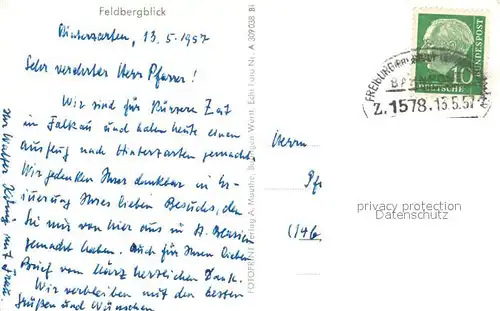 Feldbergblick
Hinterzarten, 13.5.1957
Sehr verehrter Herr Pfarrer!
Wir sind für kürzere Zeit
in Falkau und haben heute einen
Ausflug nach Hinterzarten gemacht.
Wir gedenken Ihrer dankbar in Er-
innerung Ihres lieben Besuchs, den
Sie mir von hier aus in St. Blasien
gemacht haben. Auch für Ihren lieben
Brief vom März herzlichen Dank.
Wir verbleiben mit den besten
Grüßen und Wünschen
Ihr Walter König mit Frau.
FOTOPRINT Verlag A. Mauthe, Württ. Echt Foto Nr. A 309038 Bl
Herrn
Pf
(146
privacy protection
Datenschutz
10
DEUTSCHE
BUNDESPOST
FREIBURG
BAHNPOST
Z.1578.13.5.57